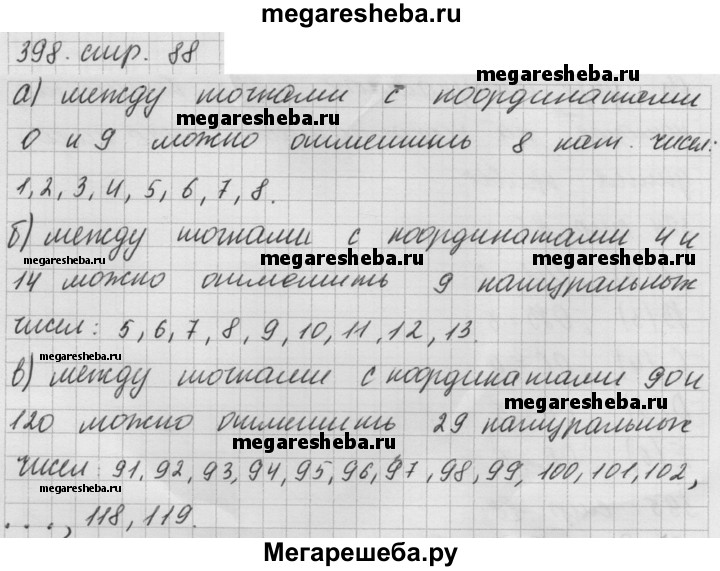 megaresheba.ru
398. стр. 88
megaresheba.ru
а) между точками с координатами
megaresheba.ru
0 и 9 можно отметить 8 нат. чисел:
1, 2, 3, 4, 5, 6, 7, 8.
б) между точками с координатами 4 и
megaresheba.ru megaresheba.ru megaresheba.ru
14 можно отметить 9 натуральных
чисел: 5, 6, 7, 8, 9, 10, 11, 12, 13.
megaresheba.ru
в) между точками с координатами 90 и
megaresheba.ru
120 можно отметить 29 натуральных
megaresheba.ru
чисел: 91, 92, 93, 94, 95, 96, 97, 98, 99, 100, 101, 102,
megaresheba.ru
..., 118, 119.
Мегарешеба.ру